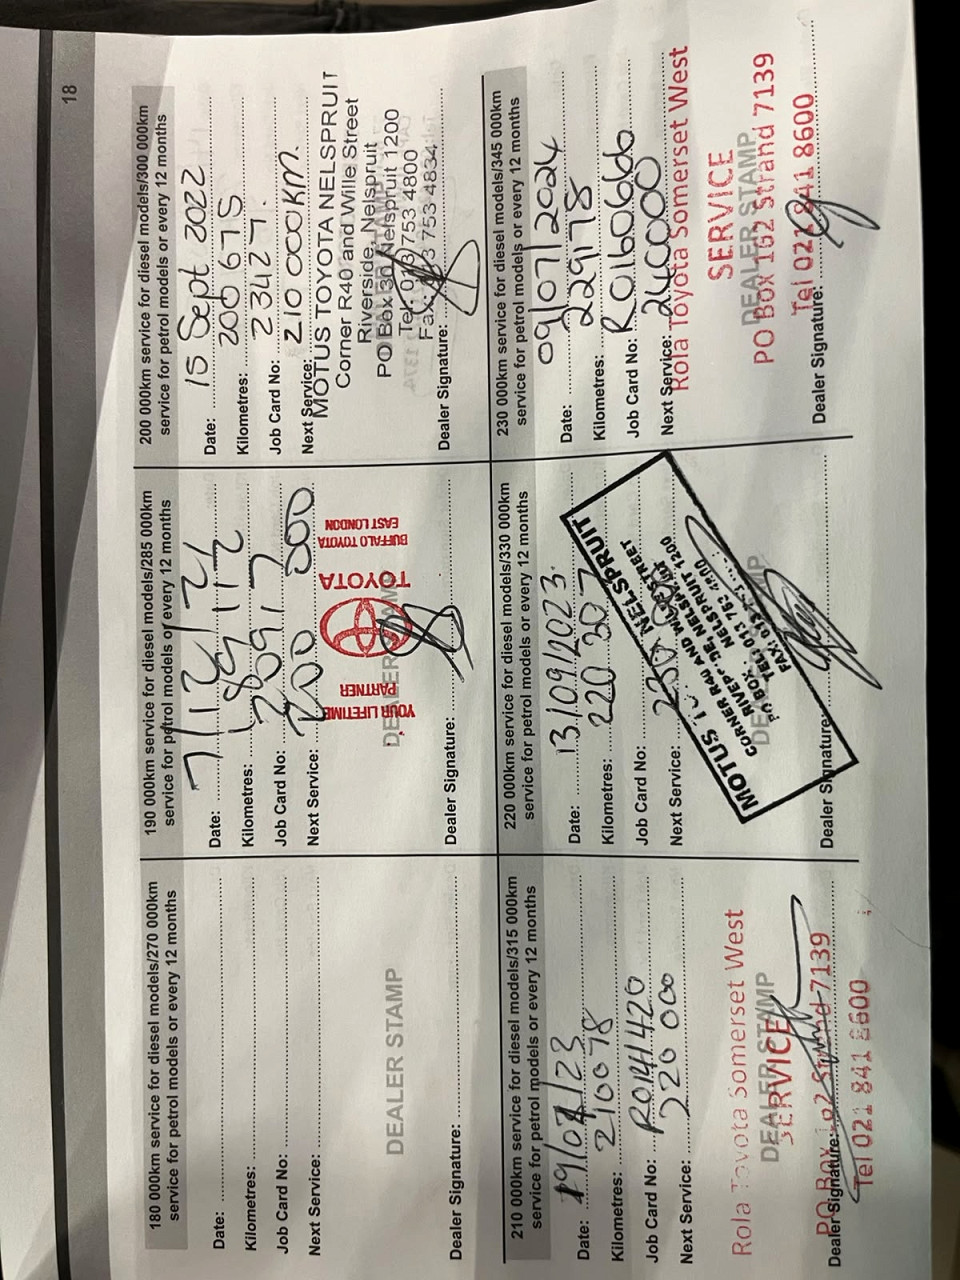 18
180 000km service for diesel models/270 000km
service for petrol models or every 12 months
Date:
Kilometres:
Job Card No:
Next Service:
DEALER STAMP
Dealer Signature:
190 000km service for diesel models/285 000km
service for petrol models or every 12 months
Date: 7/12/21
Kilometres: 189 112
Job Card No: 260917
Next Service: 200 000
YOUR LIFETIME
PARTNER
TOYOTA
BUFFALO TOYOTA
EAST LONDON
DEALER STAMP
Dealer Signature:
200 000km service for diesel models/300 000km
service for petrol models or every 12 months
Date: 15 Sept 2022
Kilometres: 200 675
Job Card No: 23427.
Next Service: 210 000km.
MOTUS TOYOTA NELSPRUIT
Corner R40 and Wille Street
Riverside, Nelspruit
PO Box 36 Nelspruit 1200
Tel: 013 753 4800
Fax: 013 753 4834
Dealer Signature:
210 000km service for diesel models/315 000km
service for petrol models or every 12 months
Date: /23
Kilometres: 210078
Job Card No: R0141420
Next Service: 220 000
Rola Toyota Somerset West
DEALER STAMP
SERVICE
PO Box 162 Strand 7139
Dealer Signature:
Tel 021 841 8600
220 000km service for diesel models/330 000km
service for petrol models or every 12 months
Date: 13/09/2023.
Kilometres: 220 307
Job Card No:
Next Service: 230 000
MOTUS NELSPRUIT
CORNER R40 AND STREET
NELSPRUIT 1200
P/O BOX:
TEL: 013 753 4800
FAX:
DEALER STAMP
Dealer Signature:
230 000km service for diesel models/345 000km
service for petrol models or every 12 months
Date: 09/07/2024
Kilometres: 229178
Job Card No: R0160660
Next Service: 240000
Rola Toyota Somerset West
SERVICE
DEALER STAMP
PO Box 162 Strand 7139
Tel 021 841 8600
Dealer Signature: